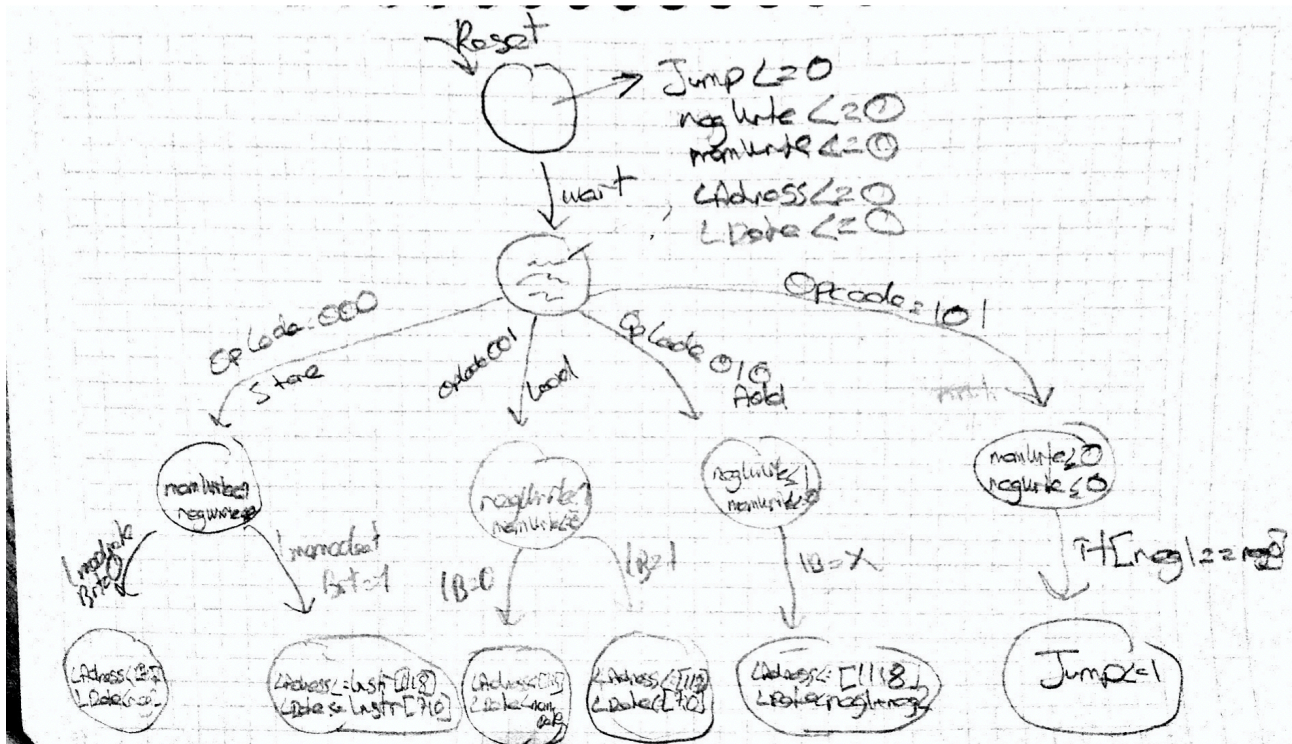 Reset
Jump<=0
regWrite<=0
memWrite<=0
LAdress<=0
LData<=0
wait
Opcode=000
Store
Opcode001
Load
Opcode 010
Add
Opcode=101
memWrite
regWrite
regWrite
memWrite
regWrite<=1
memWrite
memWrite<=0
regWrite<=0
Immediate
Bit=0
Bit=1
IB=0
IB=1
IB=X
If[reg1==reg0]
LAdress
LData
LAdress<=Instr[11:8]
LData<=Instr[7:0]
LAdress
LData
LAdress
LData<=[7:0]
LAdress<=[11:8]
LData<=reg1+reg2
Jump<=1